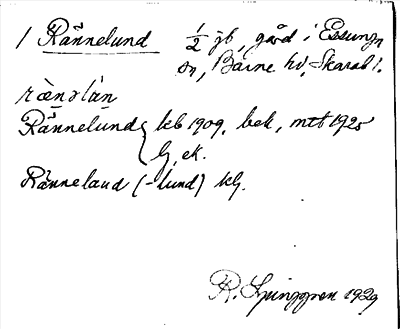 1 Rännelund ½ jb, gård i Essunga
sn, Barne hd, Skarab l.
rænəlàn
Rännelund kb 1909, bek, mtl 1925
G, ek.
Ränneland (-lund) kG.
R. Ljunggren 1929